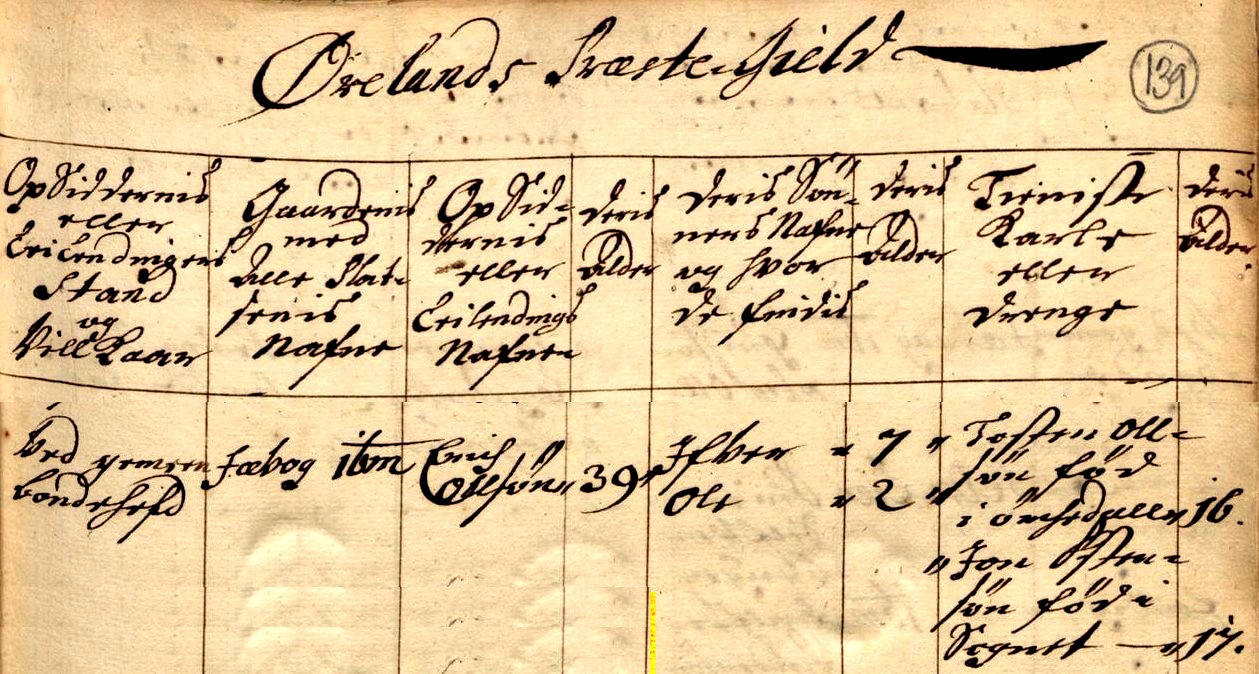 Ørelands Præste-Gield
139
OpSiddernis
eller
Leilendingers
Stand
og
Vill Kaar
Gaardenis
med
Alle Plat-
senis
Nafne
OpSid-
dernis
eller
Leilendings
Nafne
deris
Alder
deris Søn-
ners Nafne
og hvor
de findis
deris
Alder
Tieniste
Karle
eller
drenge
deris
Alder
Ved gemeen
bondehefd
Fæbog itm
Erich
Olsøn
39
Ifver " 7
Ole " 2
" Tosten Oll-
søn fød
i " 16.
" Jon Østen-
søn fød i
Sognet — " 17.